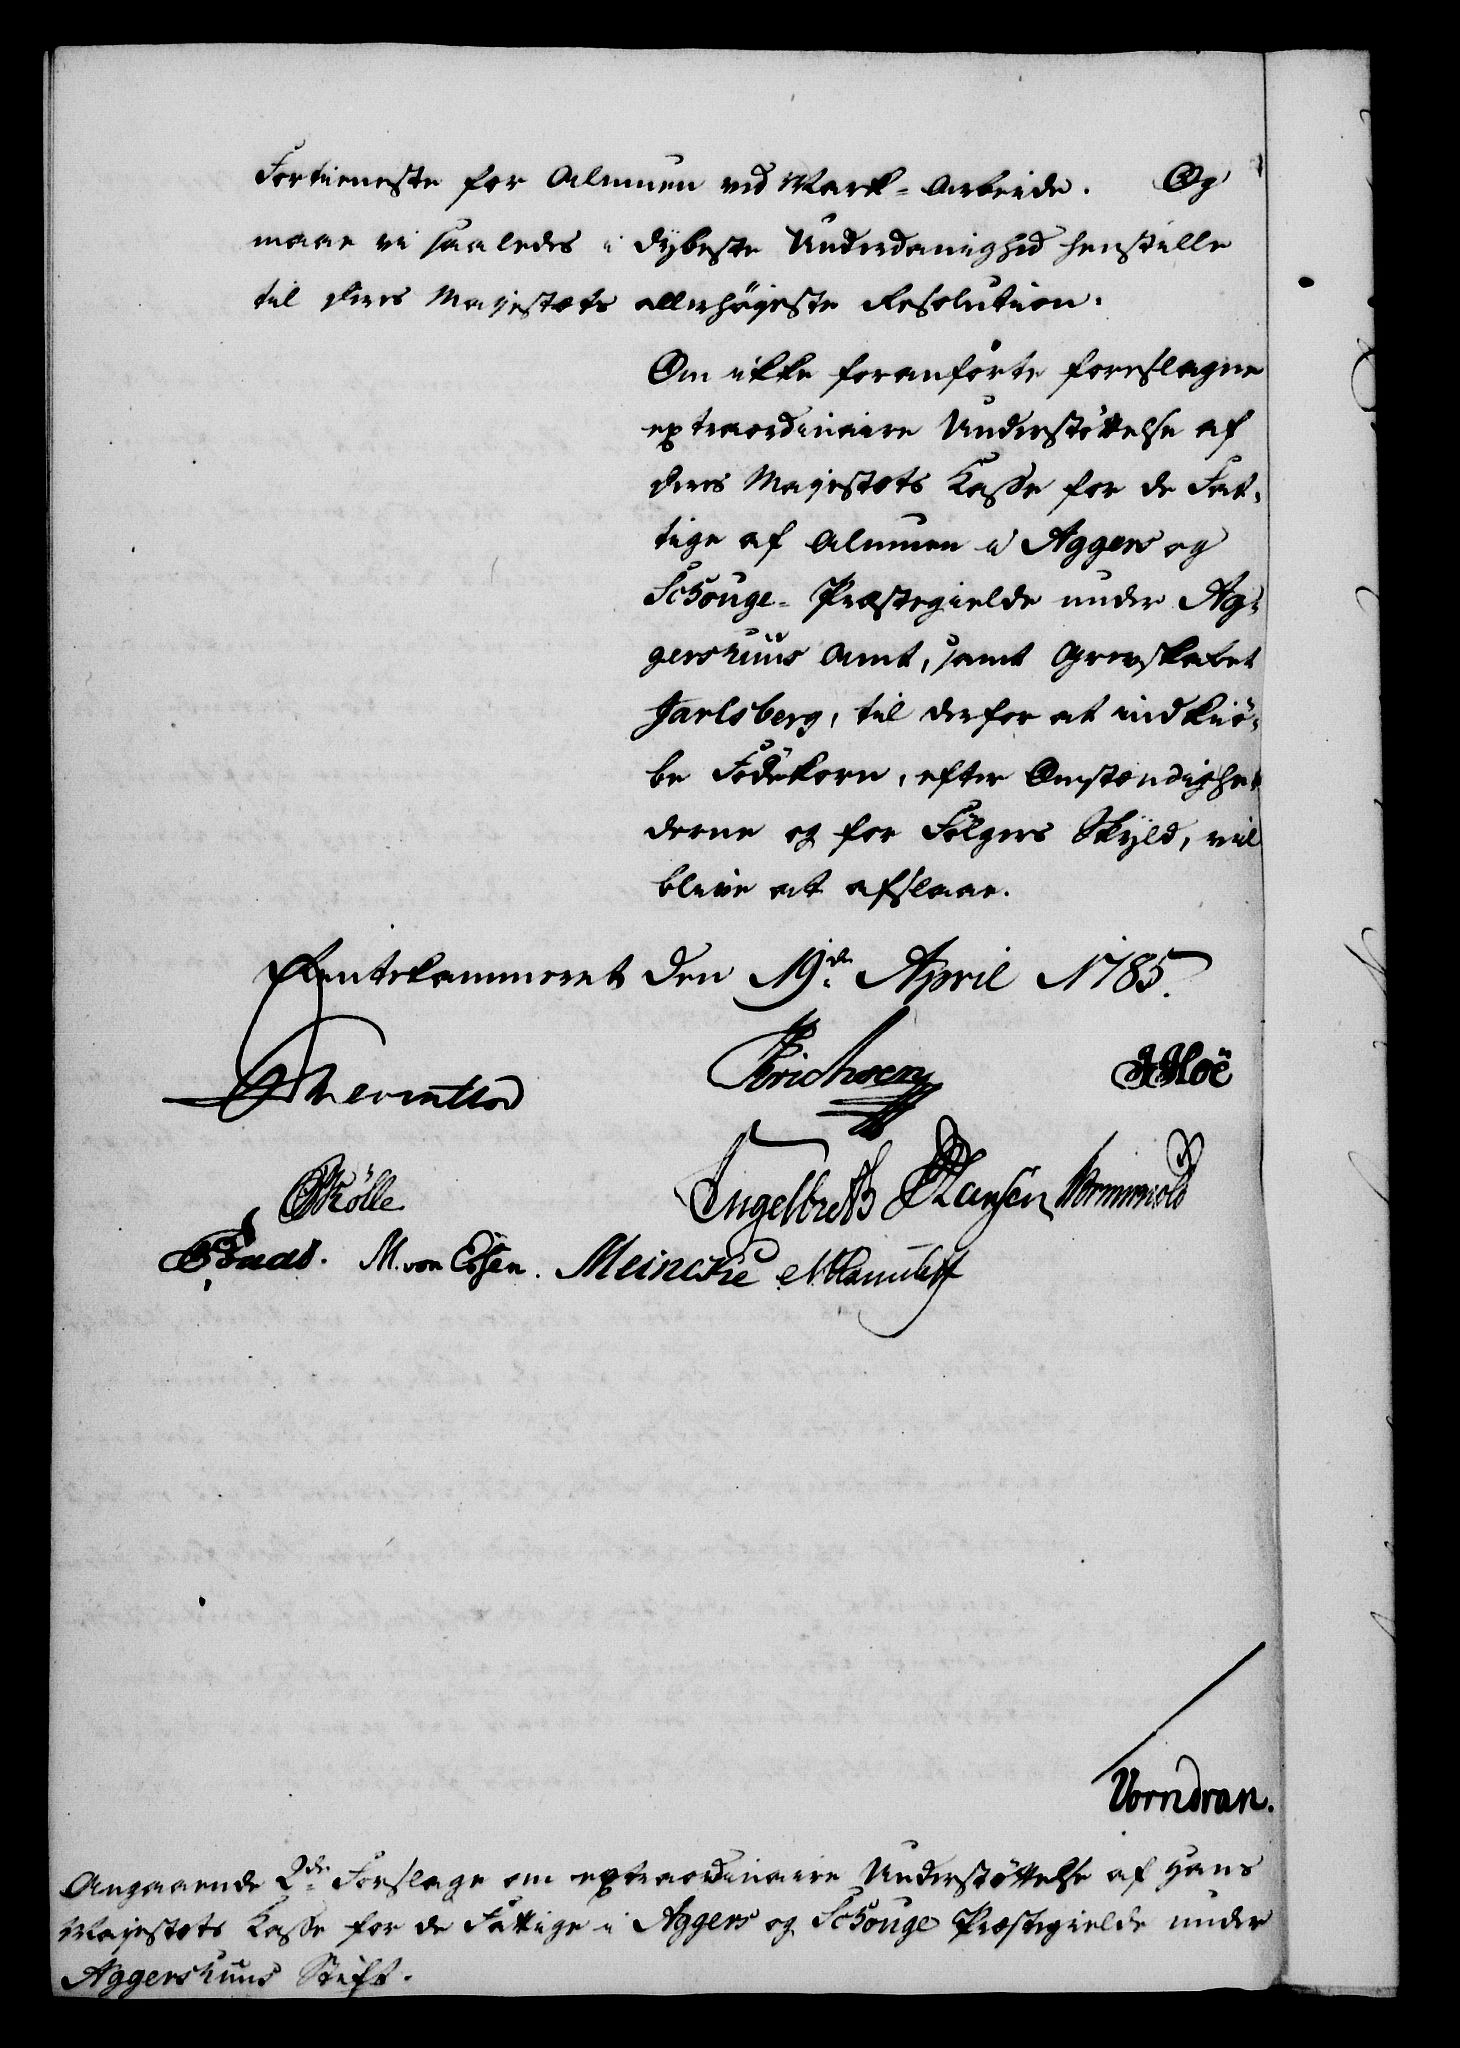 Fortieneste for Almuen ved Mark-Arbeide. Og
maae vi saaledes i dybeste Underdanighed henstille
til Deres Majestæts allerhöjeste Resolution.
Om ikke foranförte foreslagne
extraordinaire Understöttelse af
Deres Majestæts Kasse for de Fat-
tige af Almuen i Aggers og
Schouge-Præstegielde under Ag-
gershuus Amt, samt Grevskabet
Jarlsberg, til derfor at indkiö-
be Födekorn, efter Omstændighe-
derne og for Fölgers Skyld, vil
blive at afslaae.
Rentekammeret den 19de April 1785.
Erichsen
Rölle Engelbreth Hansen Wormskiold
M. von Essen. Meincke
Vorndran.
Angaaende 2de Forslage om extraordinaire Understöttelse af Hans
Majestæts Kasse for de Fattige i Aggers og Schouge Præstegielde under
Aggershuus Stift.